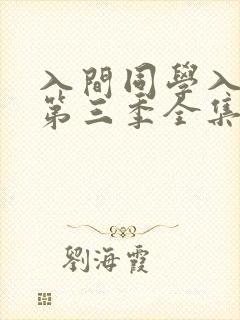 入間同學入
第三季全集
劉海霞